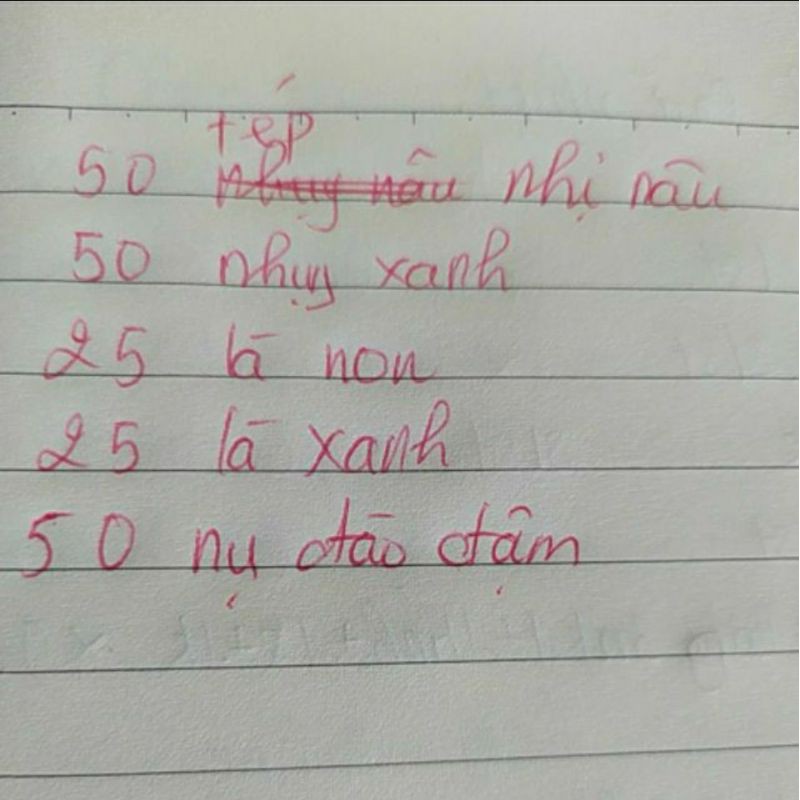 50 tép nhị nâu
50 nhụy xanh
25 lá non
25 lá xanh
50 nụ đào đậm